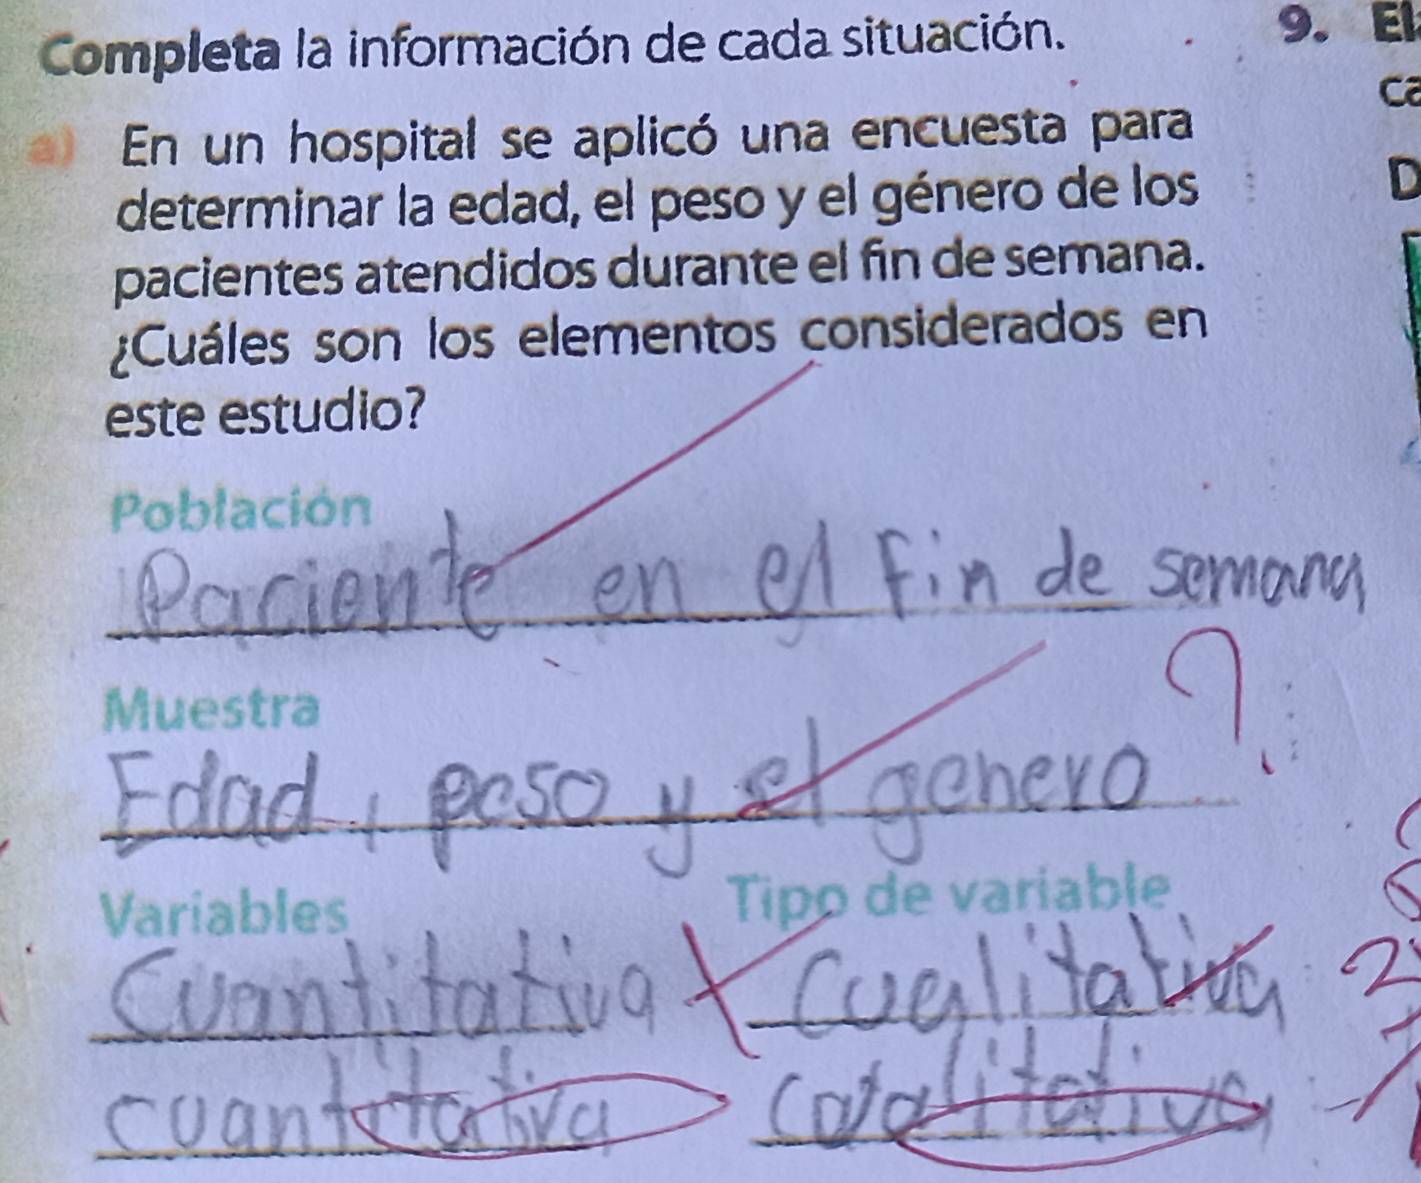 Completa la información de cada situación.
9. El
ca
a) En un hospital se aplicó una encuesta para
D
determinar la edad, el peso y el género de los
pacientes atendidos durante el fin de semana.
¿Cuáles son los elementos considerados en
este estudio?
Población
Paciente en el fin de semana
Muestra
?
Edad, peso y el genero
Variables Tipo de variable
Cuantitativa Cualitativa
cuantitativa